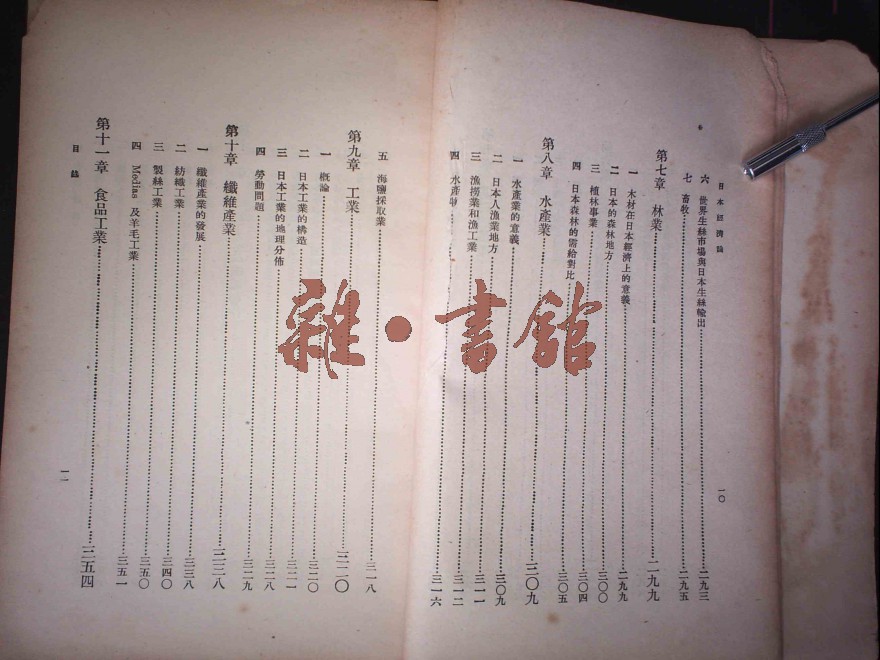 日本經濟論
六 世界生絲市場與日本生絲輸出……二九三
七 畜牧……二九五
第七章 林業……二九九
一 木材在日本經濟上的意義……二九九
二 日本的森林地方……三〇〇
三 植林事業……三〇四
四 日本森林的需給對比……三〇五
第八章 水產業……三〇九
一 水產業的意義……三〇九
二 日本人漁業地方……三一一
三 漁撈業和漁工業……三一二
四 水產……三一六
一〇
五 海鹽採取業……三一八
第九章 工業……三二〇
一 概論……三二〇
二 日本工業的構造……三二一
三 日本工業的地理分佈……三二八
四 勞動問題……三二九
第十章 纖維產業……三三八
一 纖維產業的發展……三三八
二 紡織工業……三四〇
三 製絲工業……三五〇
四 Medias 及羊毛工業……三五一
第十一章 食品工業……三五四
目錄
一一
雜·書館